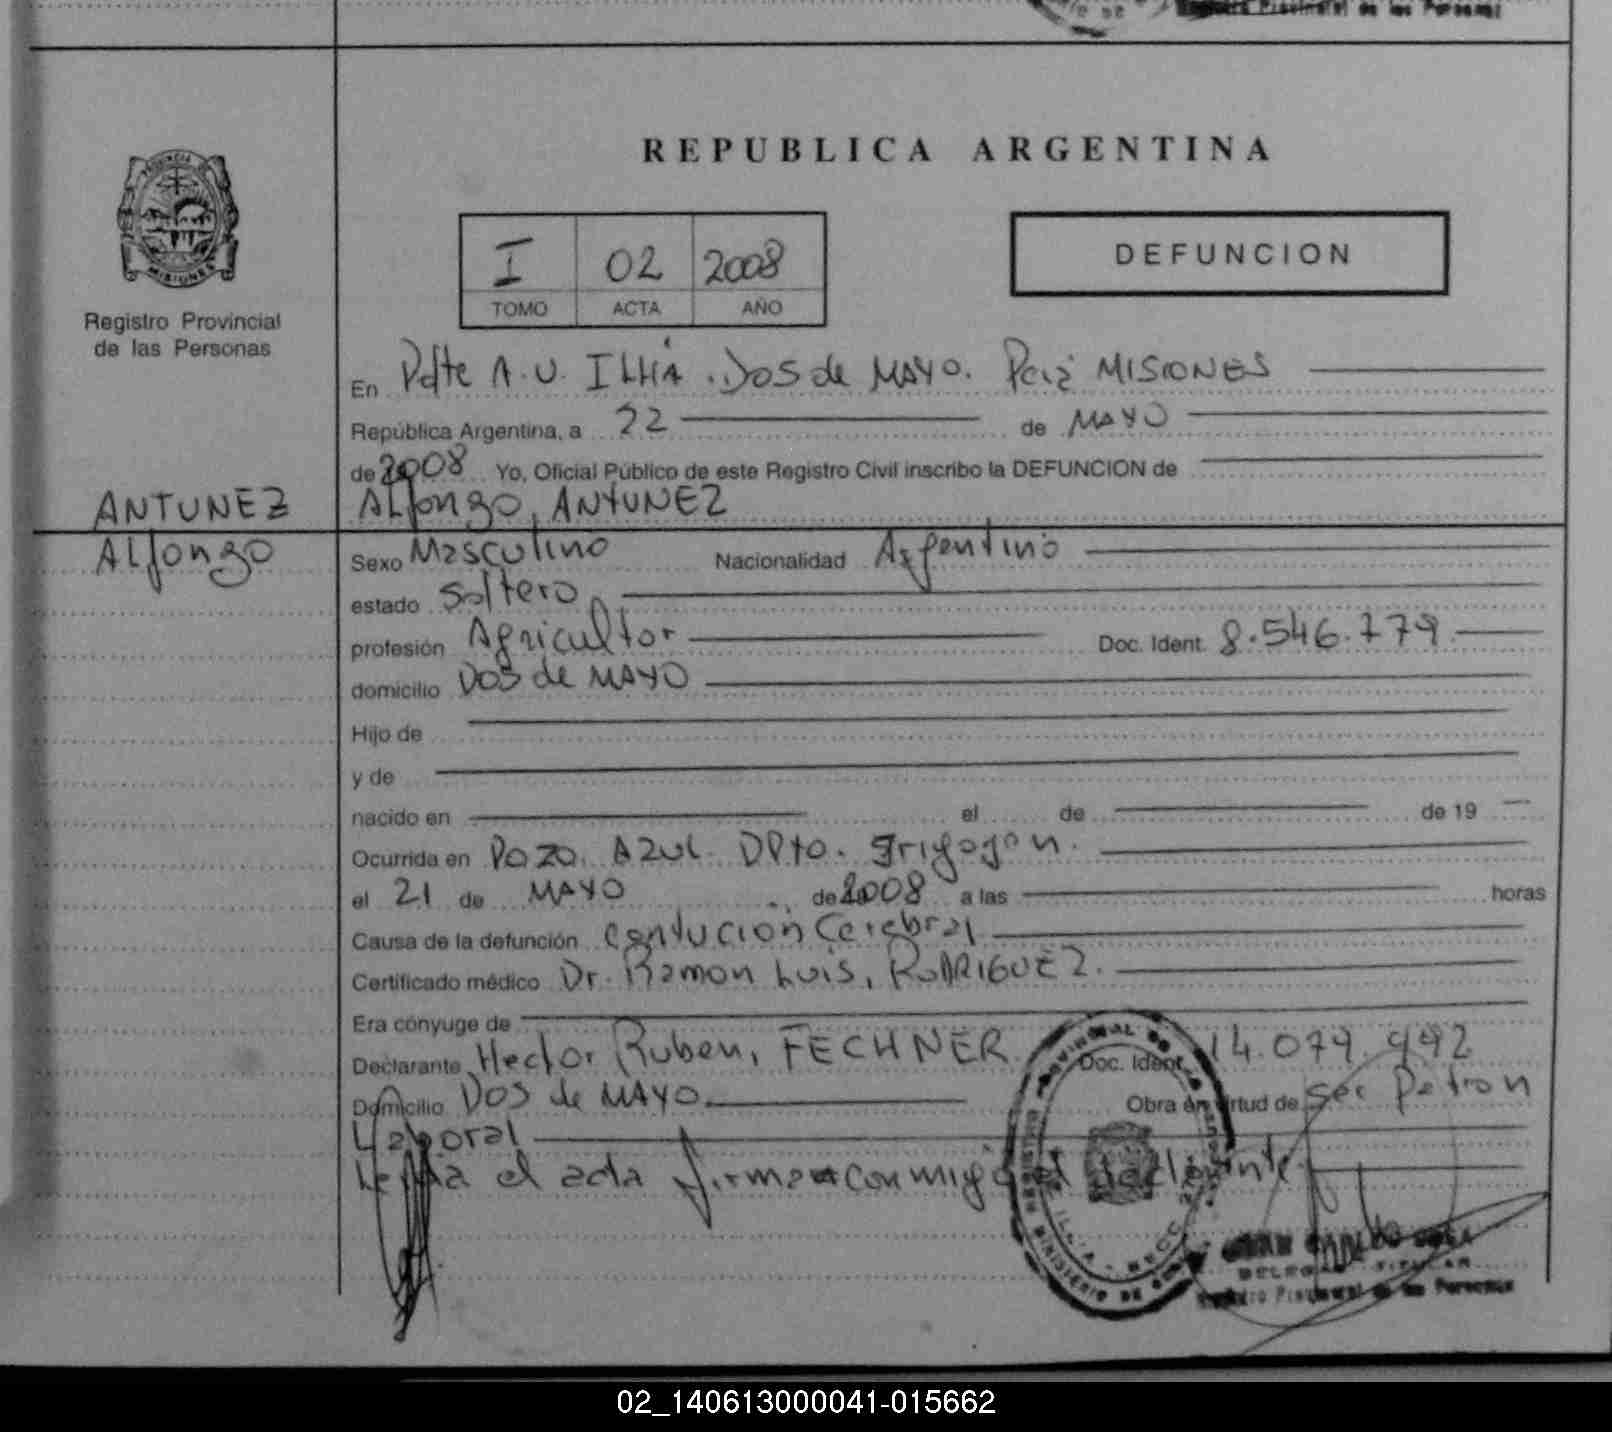 Registro Provincial de las Personas
REPUBLICA ARGENTINA
PROVINCIA
MISIONES
Registro Provincial
de las Personas
I 02 2008
TOMO ACTA AÑO
DEFUNCION
En Pdte A. U. ILLIA. Dos de MAYO. MISIONES
República Argentina, a 22 de MAYO
de 2008 Yo, Oficial Público de este Registro Civil inscribo la DEFUNCION de
ANTUNEZ
Alfonzo, ANTUNEZ
Alfonzo
Sexo Masculino Nacionalidad Argentino
estado Soltero
profesión Agricultor Doc. Ident. 8.546.779
domicilio DOS de MAYO
Hijo de
y de
nacido en el de de 19
Ocurrida en POZO AZUL DPto. Irigoyen.
el 21 de MAYO de 2008 a las horas
Causa de la defunción contucion Cerebral
Certificado médico Dr. Ramon Luis, RODRIGUEZ.
Era cónyuge de
Declarante Hector Ruben, FECHNER Doc. Ident. 14.079.992
Domicilio DOS de MAYO Obra en virtud de ser Patron
Laboral
el acta firma conmigo el declarante
DELEGADO TITULAR
Registro Provincial de las Personas
02_140613000041-015662